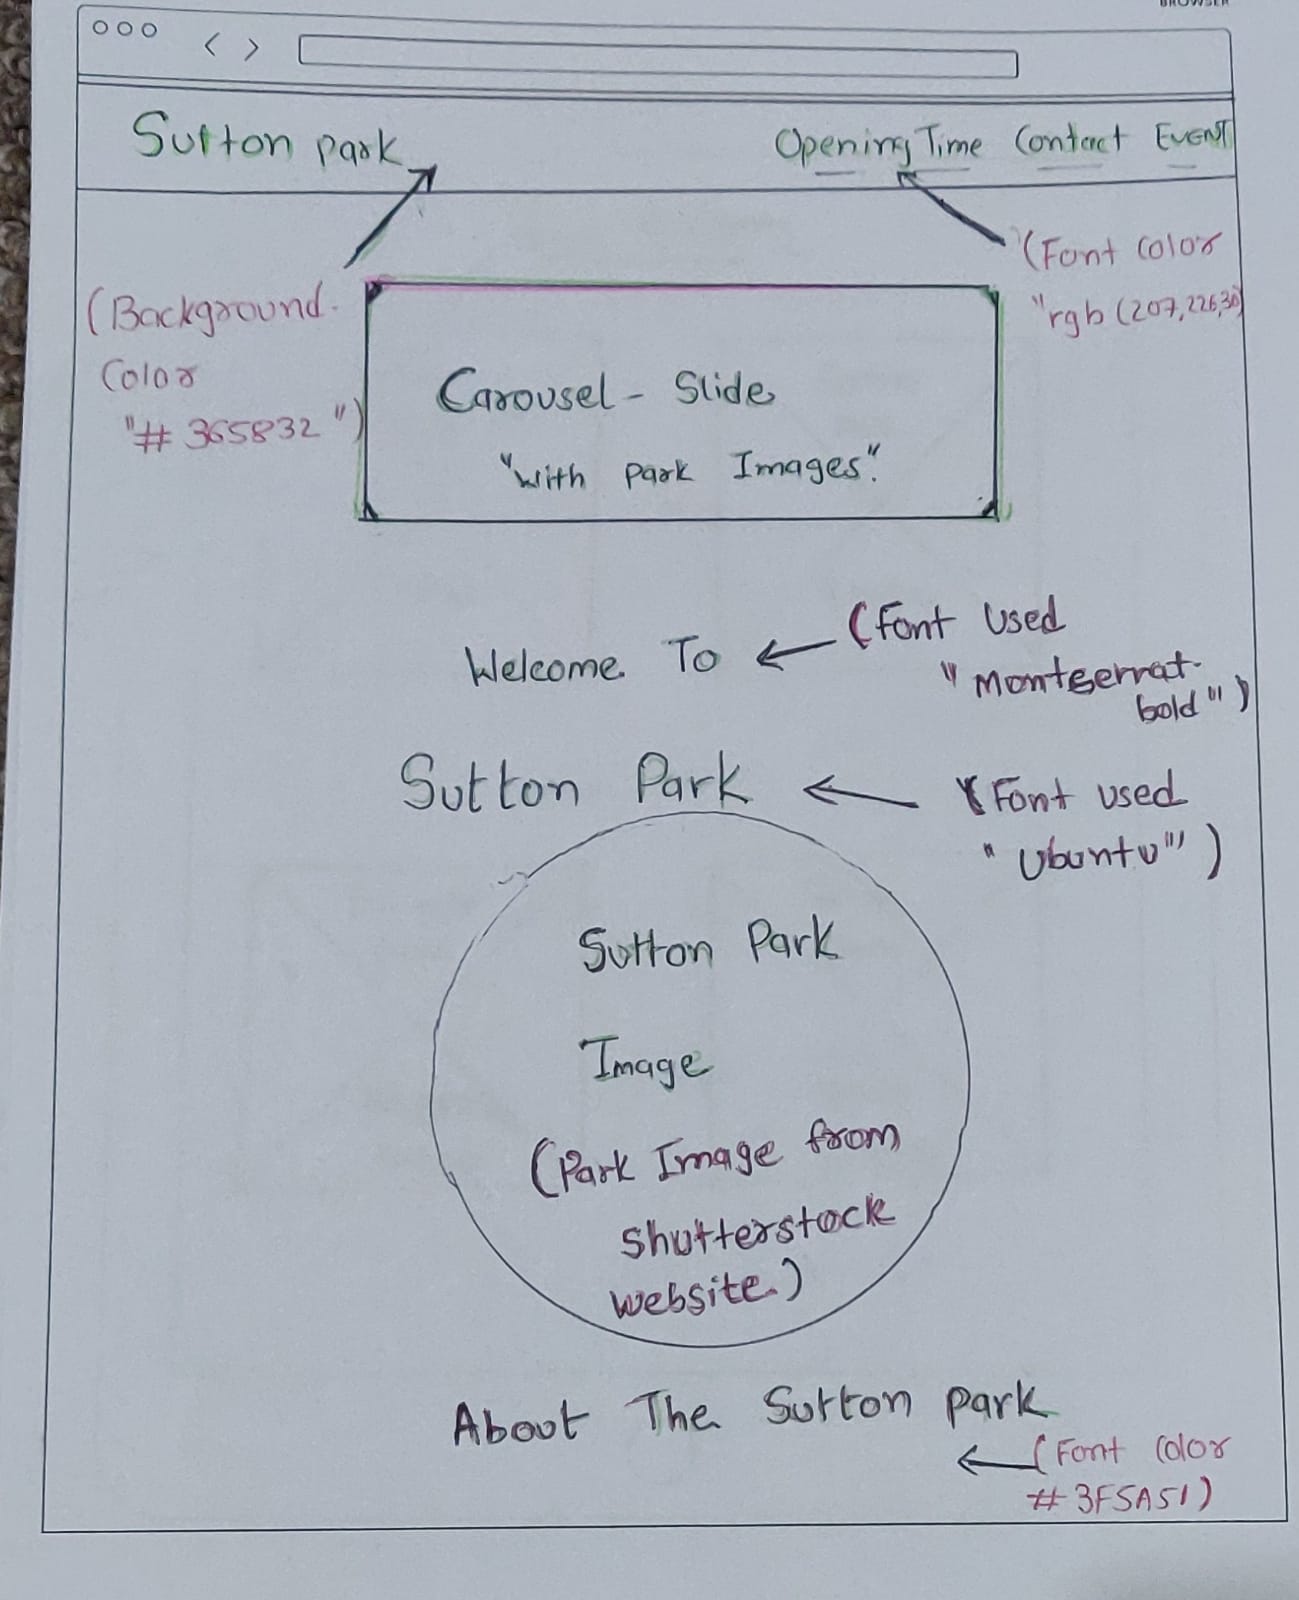 BROWSER
Sutton park
Opening Time Contact EVENT
(Background
Color
"#365832")
(Font Color
"rgb (207,226,30)
Carousel - Slide
"with park Images".
Welcome To
(Font Used
"Montserrat-
bold")
Sutton Park
(Font used
"Ubuntu")
Sutton Park
Image
(Park Image from
shutterstock
website.)
About The Sutton park
(Font Color
#3F5A51)